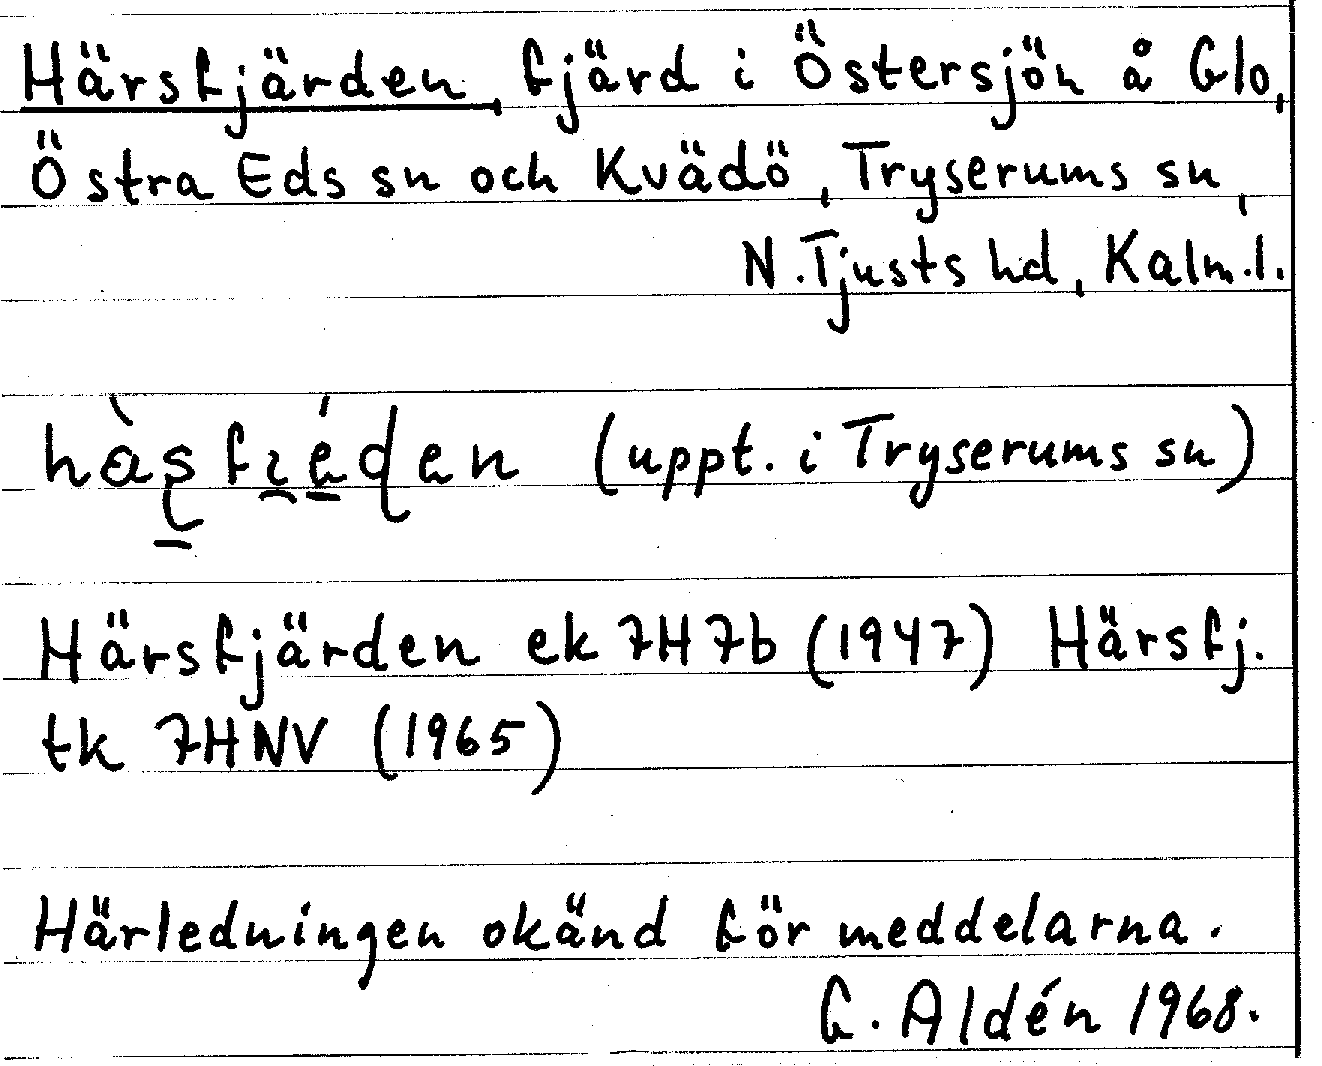 Härsfjärden, fjärd i Östersjön å Glo,
Östra Eds sn och Kvädö, Tryserums sn,
N. Tjusts hd, Kalm. l.
(uppt. i Tryserums sn)
Härsfjärden ek 7H7b (1947) Härsfj.
tk 7HNV (1965)
Härledningen okänd för meddelarna.
G. Aldén 1968.